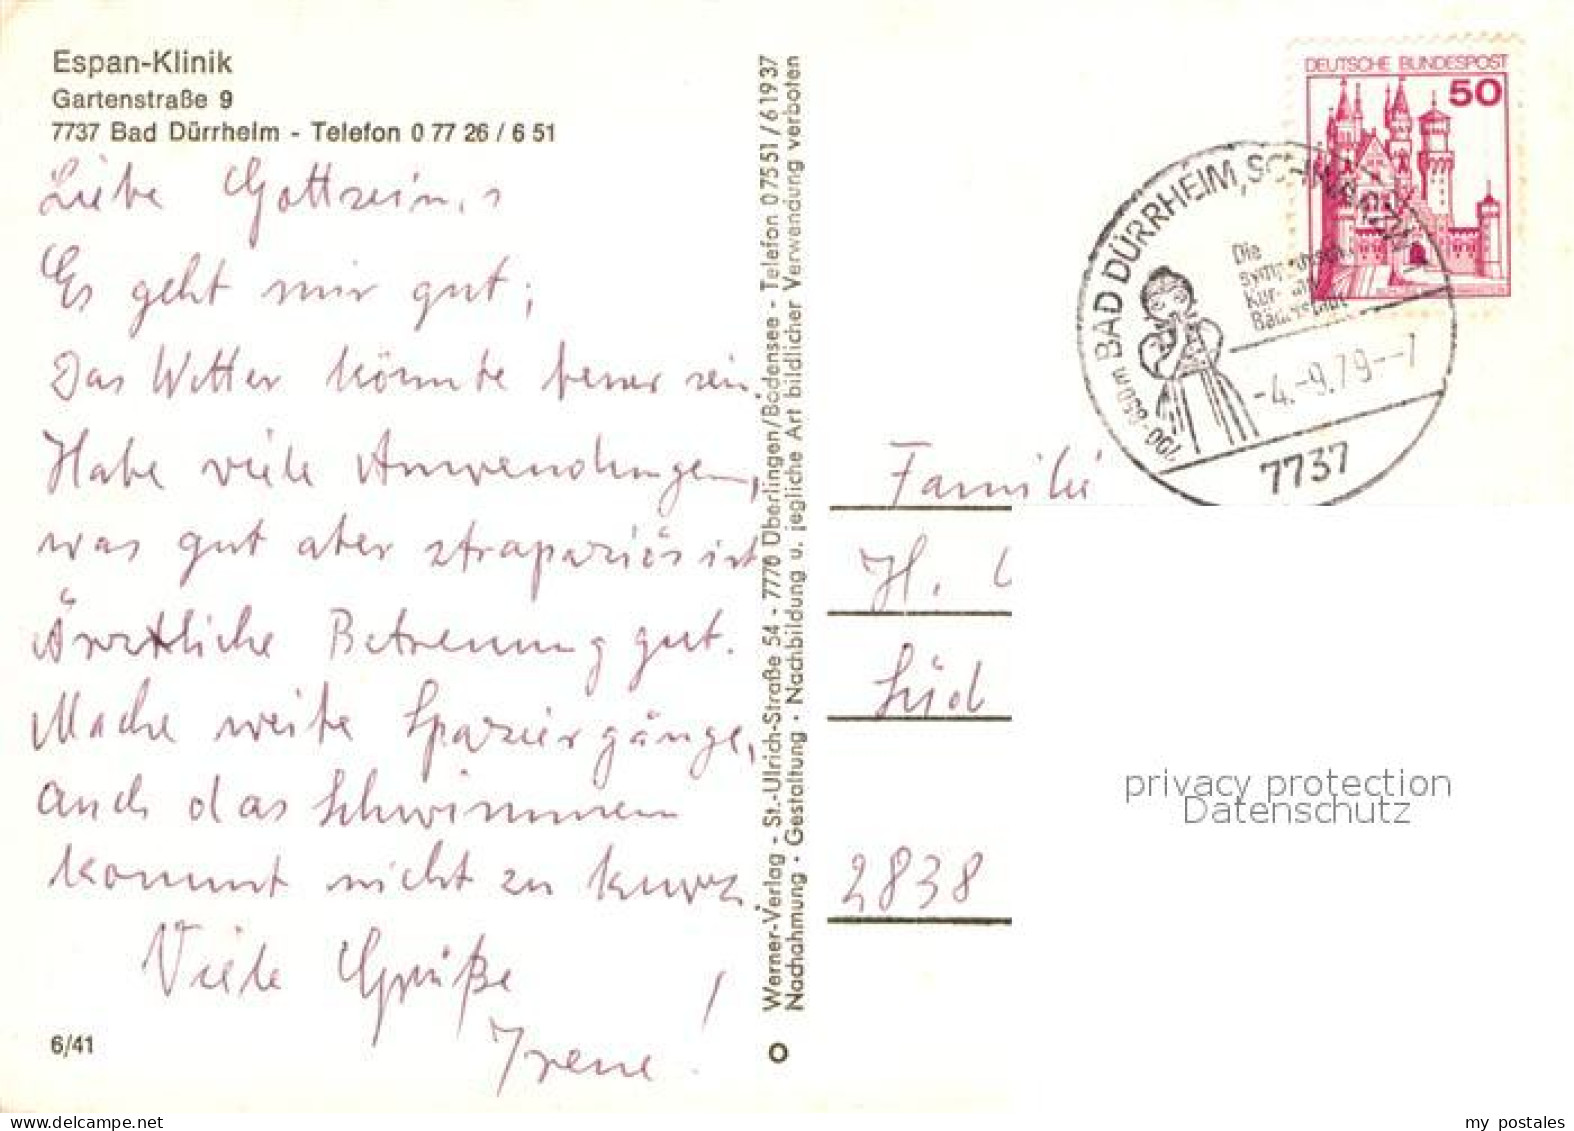 Espan-Klinik
Gartenstraße 9
7737 Bad Dürrheim - Telefon 0 77 26 / 6 51
Liebe
Es geht mir gut;
Das Wetter könnte besser sein
Habe viele Anwendungen,
was gut aber strapaziös ist
Ärztliche Betreuung gut.
Mache weite Spaziergänge,
auch das Schwimmen
kommt nicht zu kurz.
Viele Grüße
Irene!
6/41
Werner-Verlag - St.-Ulrich-Straße 54 - 7770 Überlingen/Bodensee - Telefon 07551/61937
Nachahmung · Gestaltung · Nachbildung u. jegliche Art bildlicher Verwendung verboten
DEUTSCHE BUNDESPOST
50
700-850m BAD DÜRRHEIM,
Die
Kur- und
Bäderstadt
-4.-9.79--7
7737
Familie
H.
Süd
2838
privacy protection
Datenschutz
my postales